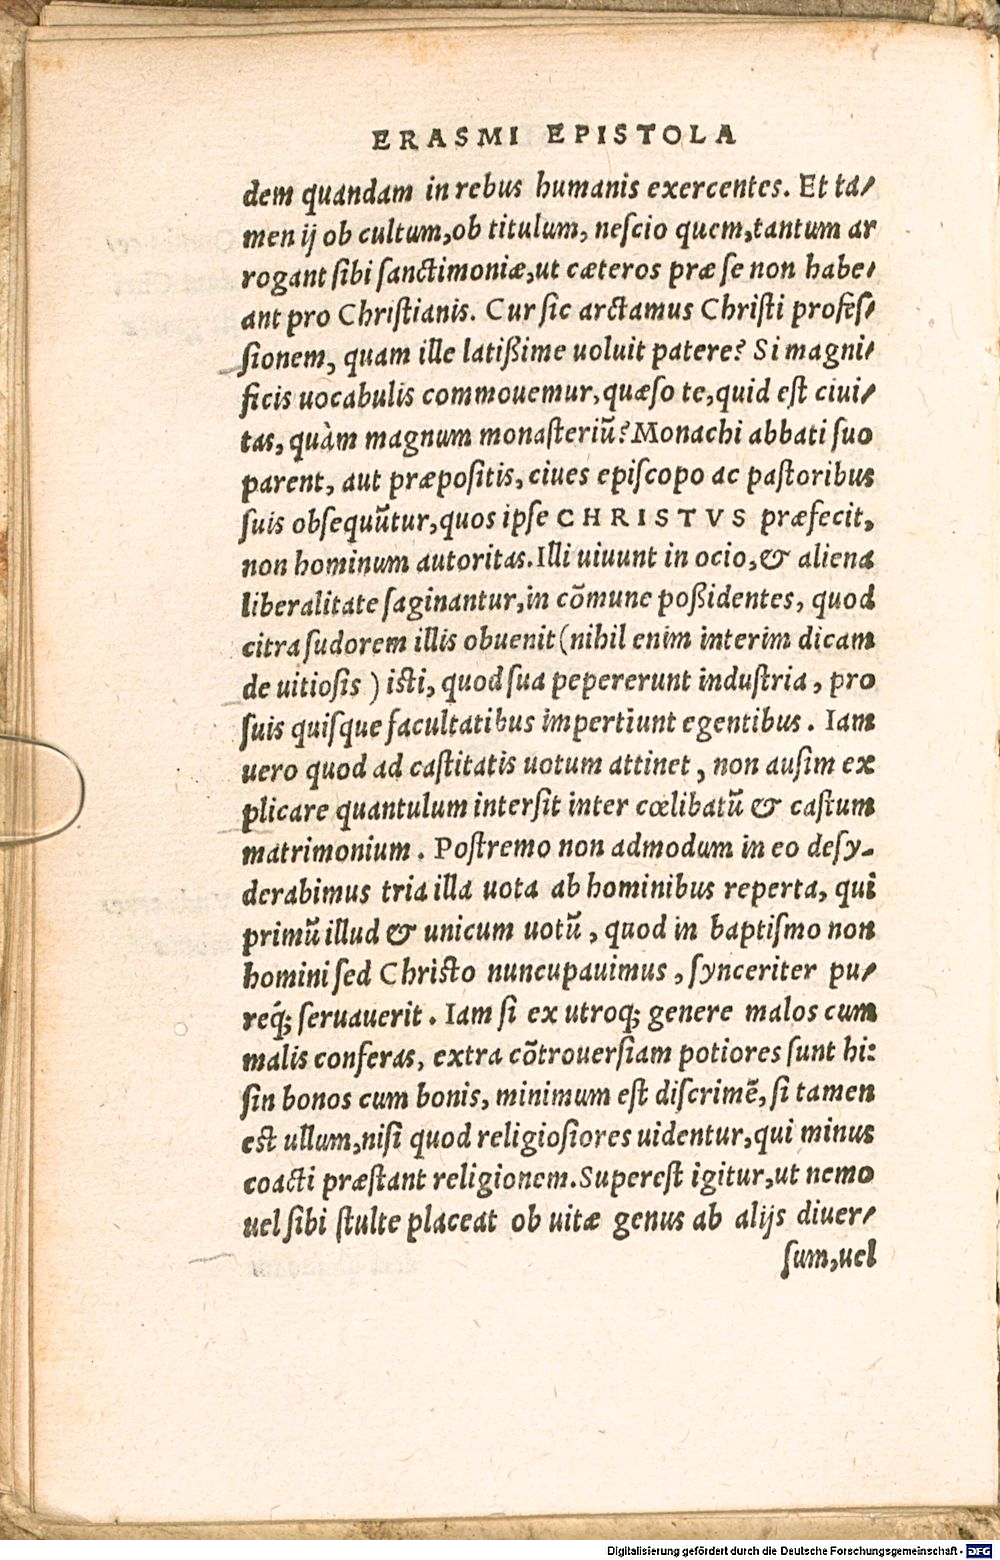 ERASMI EPISTOLA
dem quandam in rebus humanis exercentes. Et ta/
men ij ob cultum, ob titulum, neſcio quem, tantum ar
rogant ſibi ſanctimoniæ, ut cæteros præ ſe non habe/
ant pro Chriſtianis. Cur ſic arctamus Chriſti profeſ/
ſionem, quam ille latißime uoluit patere? Si magni/
ficis uocabulis commouemur, quæſo te, quid eſt ciui/
tas, quàm magnum monaſteriũ? Monachi abbati ſuo
parent, aut præpoſitis, ciues epiſcopo ac paſtoribus
ſuis obſequũtur, quos ipſe CHRISTVS præfecit,
non hominum autoritas. Illi uiuunt in ocio, & aliena
liberalitate ſaginantur, in cõmune poßidentes, quod
citra ſudorem illis obuenit (nihil enim interim dicam
de uitioſis ) iſti, quod ſua pepererunt induſtria, pro
ſuis quiſque facultatibus impertiunt egentibus. Iam
uero quod ad caſtitatis uotum attinet, non auſim ex
plicare quantulum interſit inter cœlibatũ & caſtum
matrimonium. Poſtremo non admodum in eo deſy-
derabimus tria illa uota ab hominibus reperta, qui
primũ illud & unicum uotũ, quod in baptiſmo non
homini ſed Chriſto nuncupauimus, ſynceriter pu/
req́; ſeruauerit. Iam ſi ex utroq; genere malos cum
malis conferas, extra cõtrouerſiam potiores ſunt hi:
ſin bonos cum bonis, minimum eſt diſcrimẽ, ſi tamen
eſt ullum, niſi quod religioſiores uidentur, qui minus
coacti præſtant religionem. Supereſt igitur, ut nemo
uel ſibi ſtulte placeat ob uitæ genus ab alijs diuer/
ſum, uel
Digitalisierung gefördert durch die Deutsche Forschungsgemeinschaft - DFG